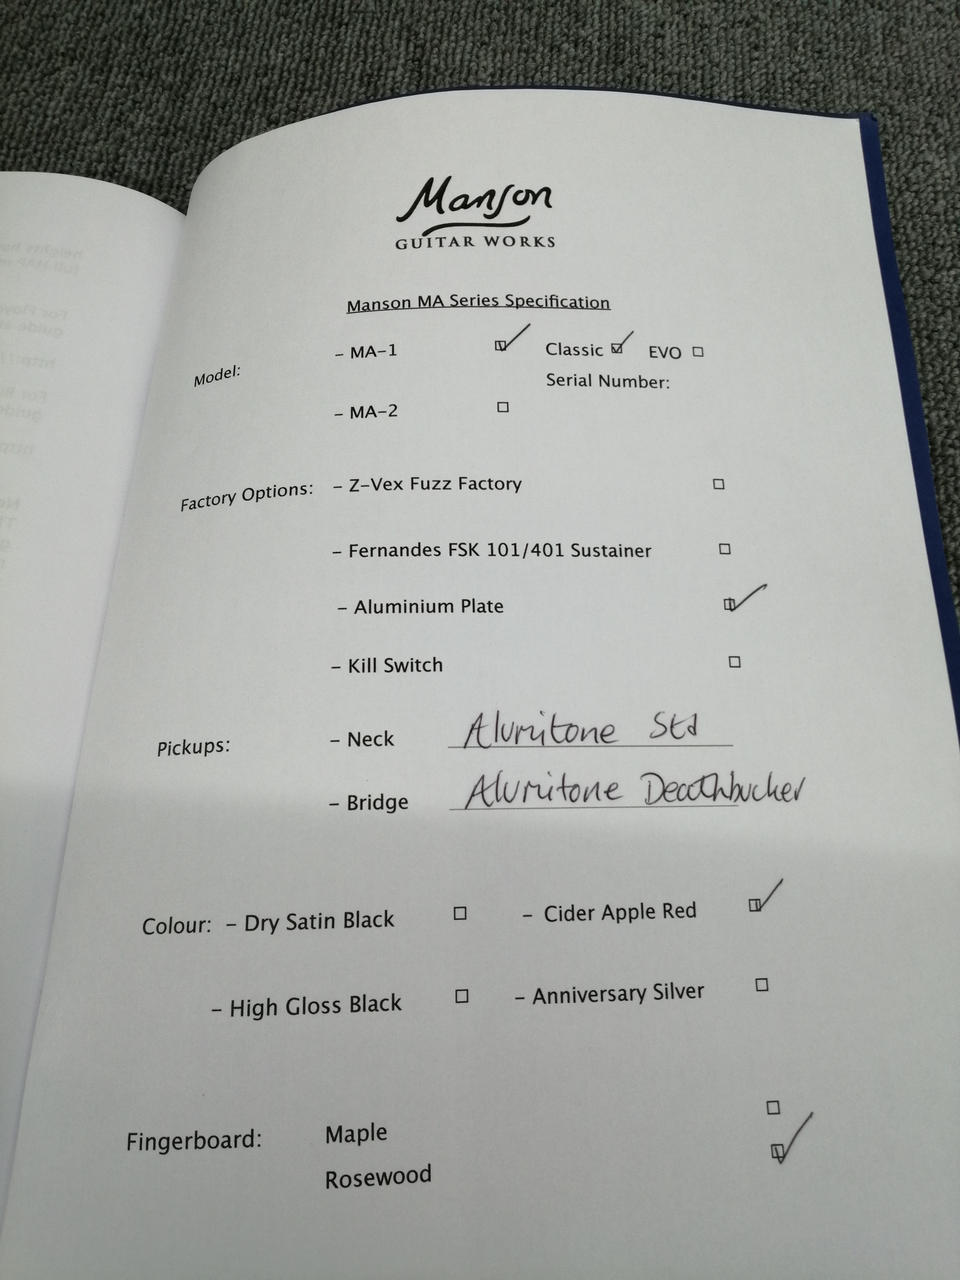 Manson
GUITAR WORKS
Manson MA Series Specification
Model: - MA-1 Classic EVO
Serial Number:
- MA-2
Factory Options: - Z-Vex Fuzz Factory
- Fernandes FSK 101/401 Sustainer
- Aluminium Plate
- Kill Switch
Pickups: - Neck Alumitone Std
- Bridge Alumitone Deathbucker
Colour: - Dry Satin Black - Cider Apple Red
- High Gloss Black - Anniversary Silver
Fingerboard: Maple
Rosewood